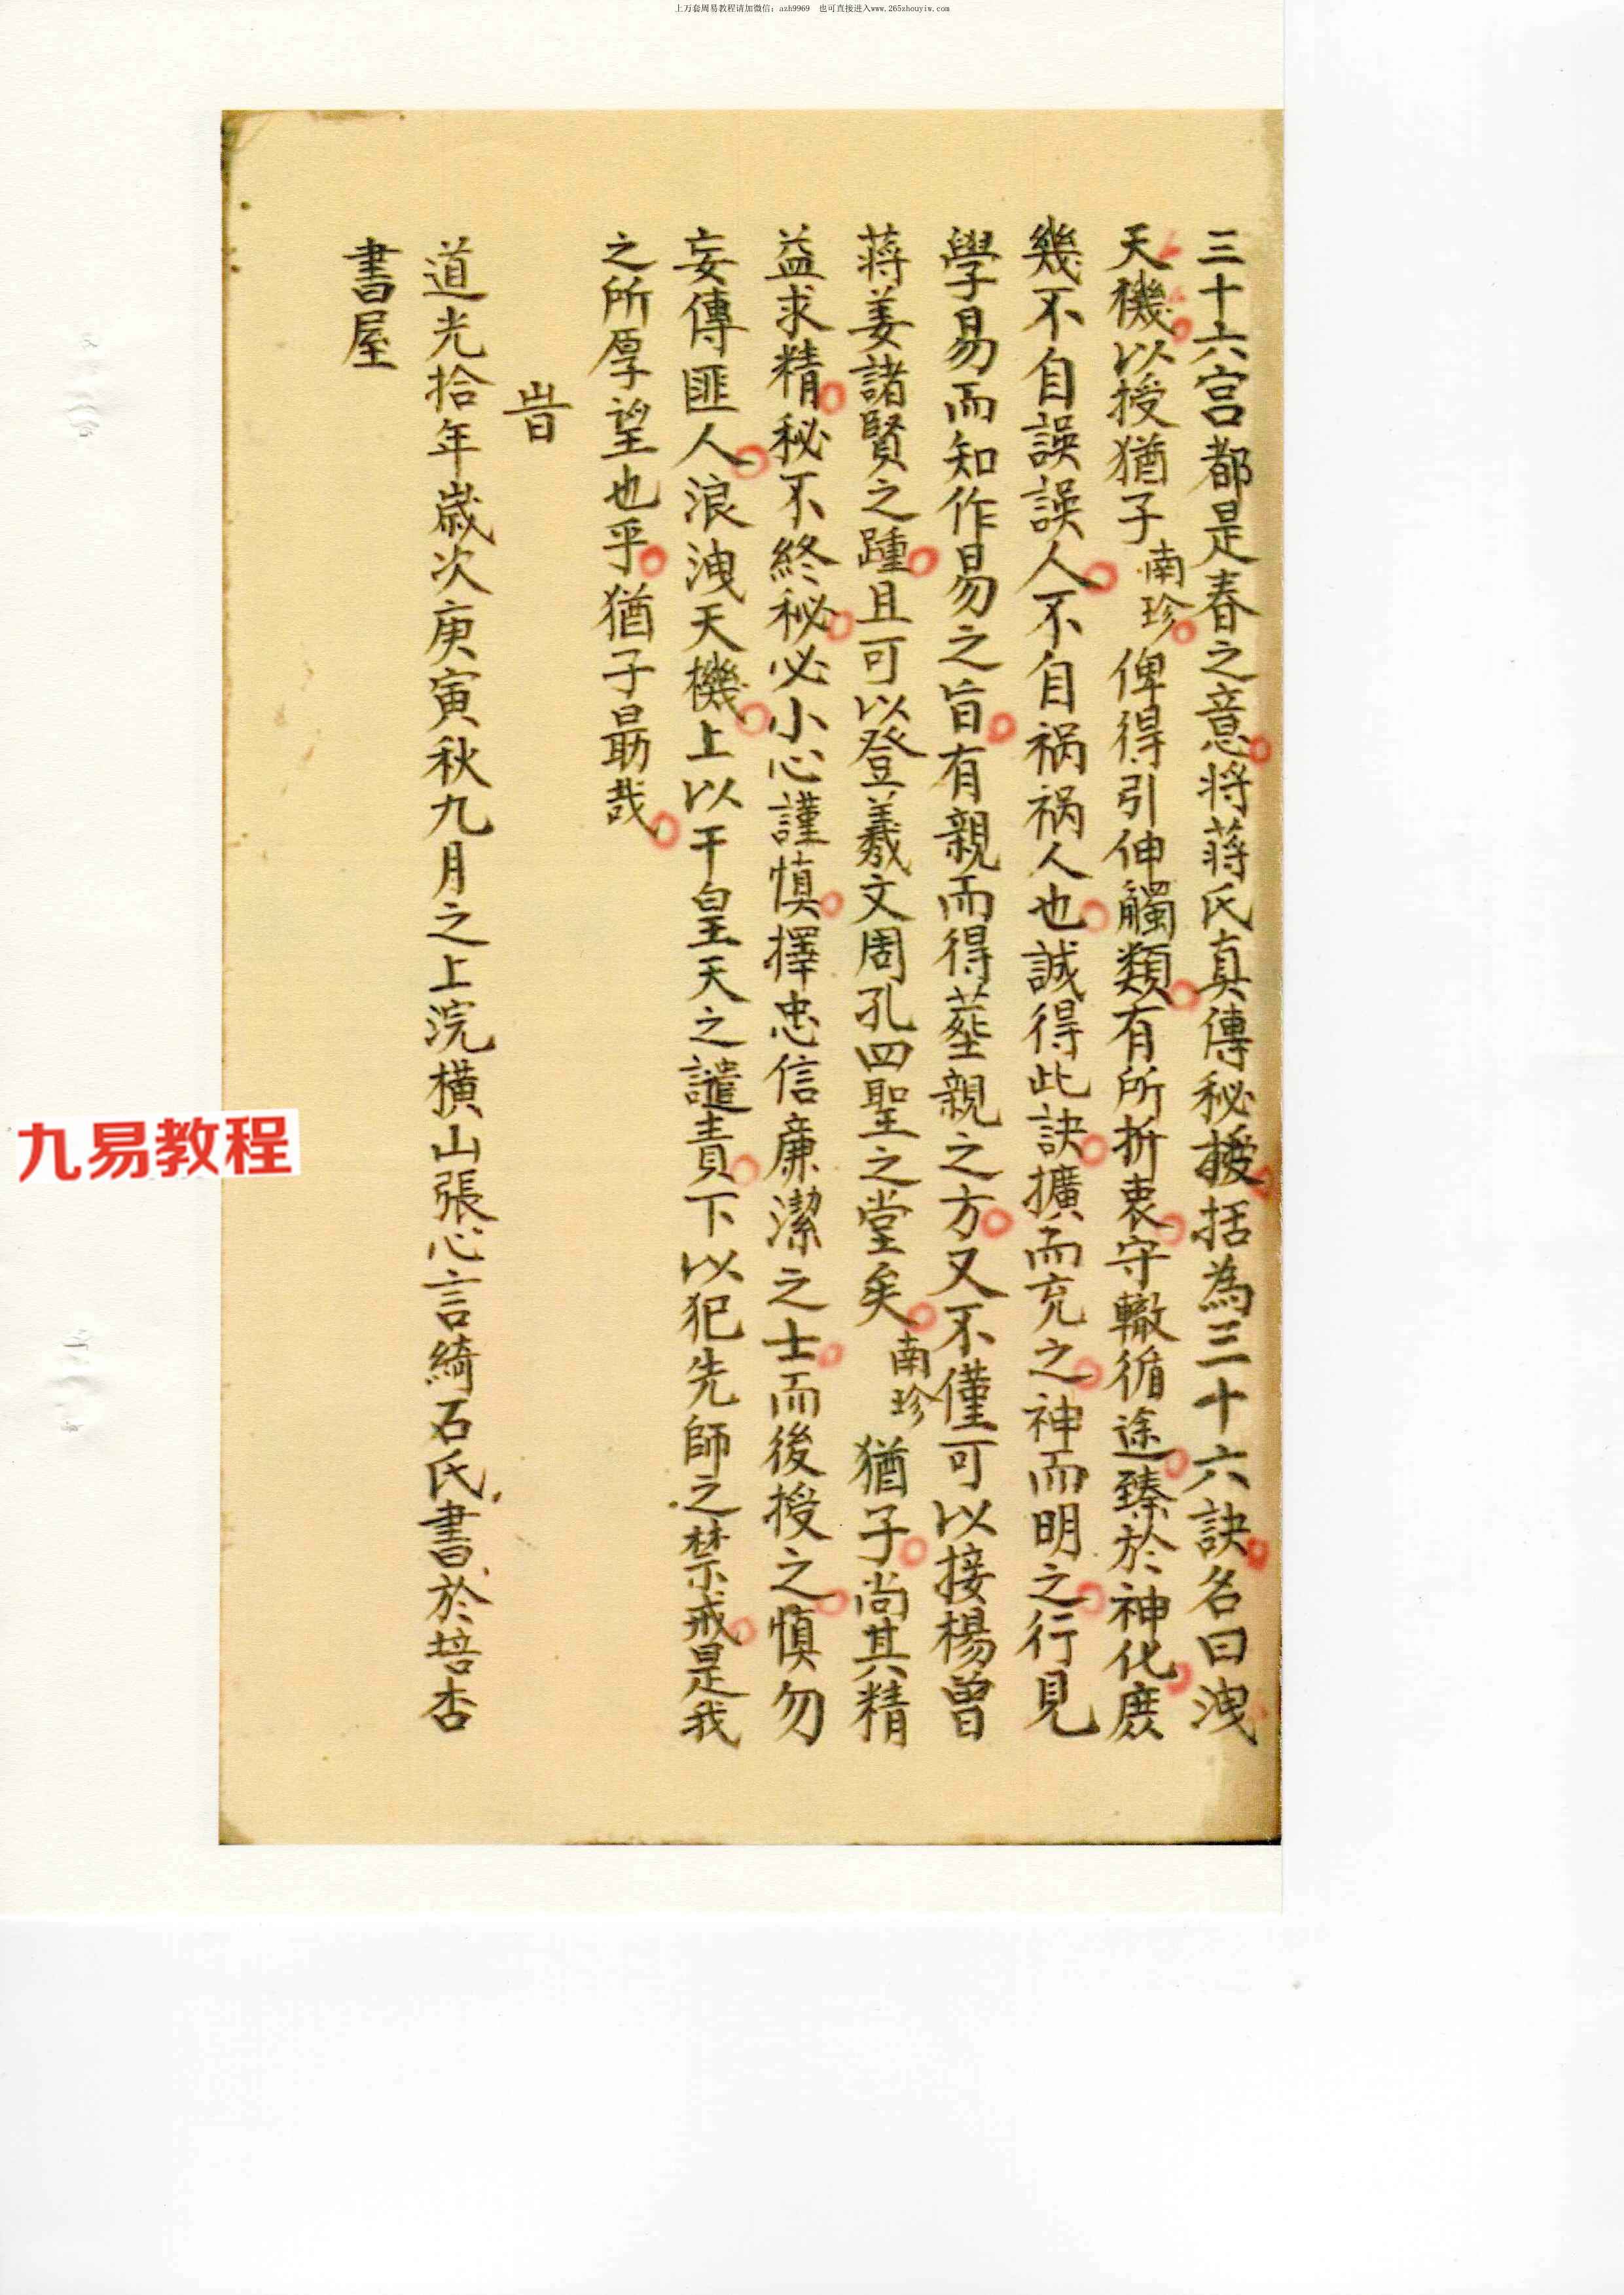 上万套周易教程请加微信：azh9969　也可直接进入www.265zhouyiw.com
三十六宮都是春之意將蔣氏真傳秘授括為三十六訣名曰洩
天機以授猶子南珍俾得引伸觸類有所折衷守轍循途臻於神化庶
幾不自誤誤人不自祸祸人也誠得此訣擴而充之神而明之行見
學易而知作易之旨有親而得塟親之方又不僅可以接楊曾
蔣姜諸賢之踵且可以登羲文周孔四聖之堂矣南珍猶子尚其精
益求精秘不終秘必小心謹慎擇忠信廉潔之士而後授之慎勿
妄傳匪人浪洩天機上以干皇天之譴責下以犯先師之禁戒是我
之所厚望也乎猶子勗哉
旹
道光拾年歲次庚寅秋九月之上浣橫山張心言綺石氏書於培杏
書屋
九易教程